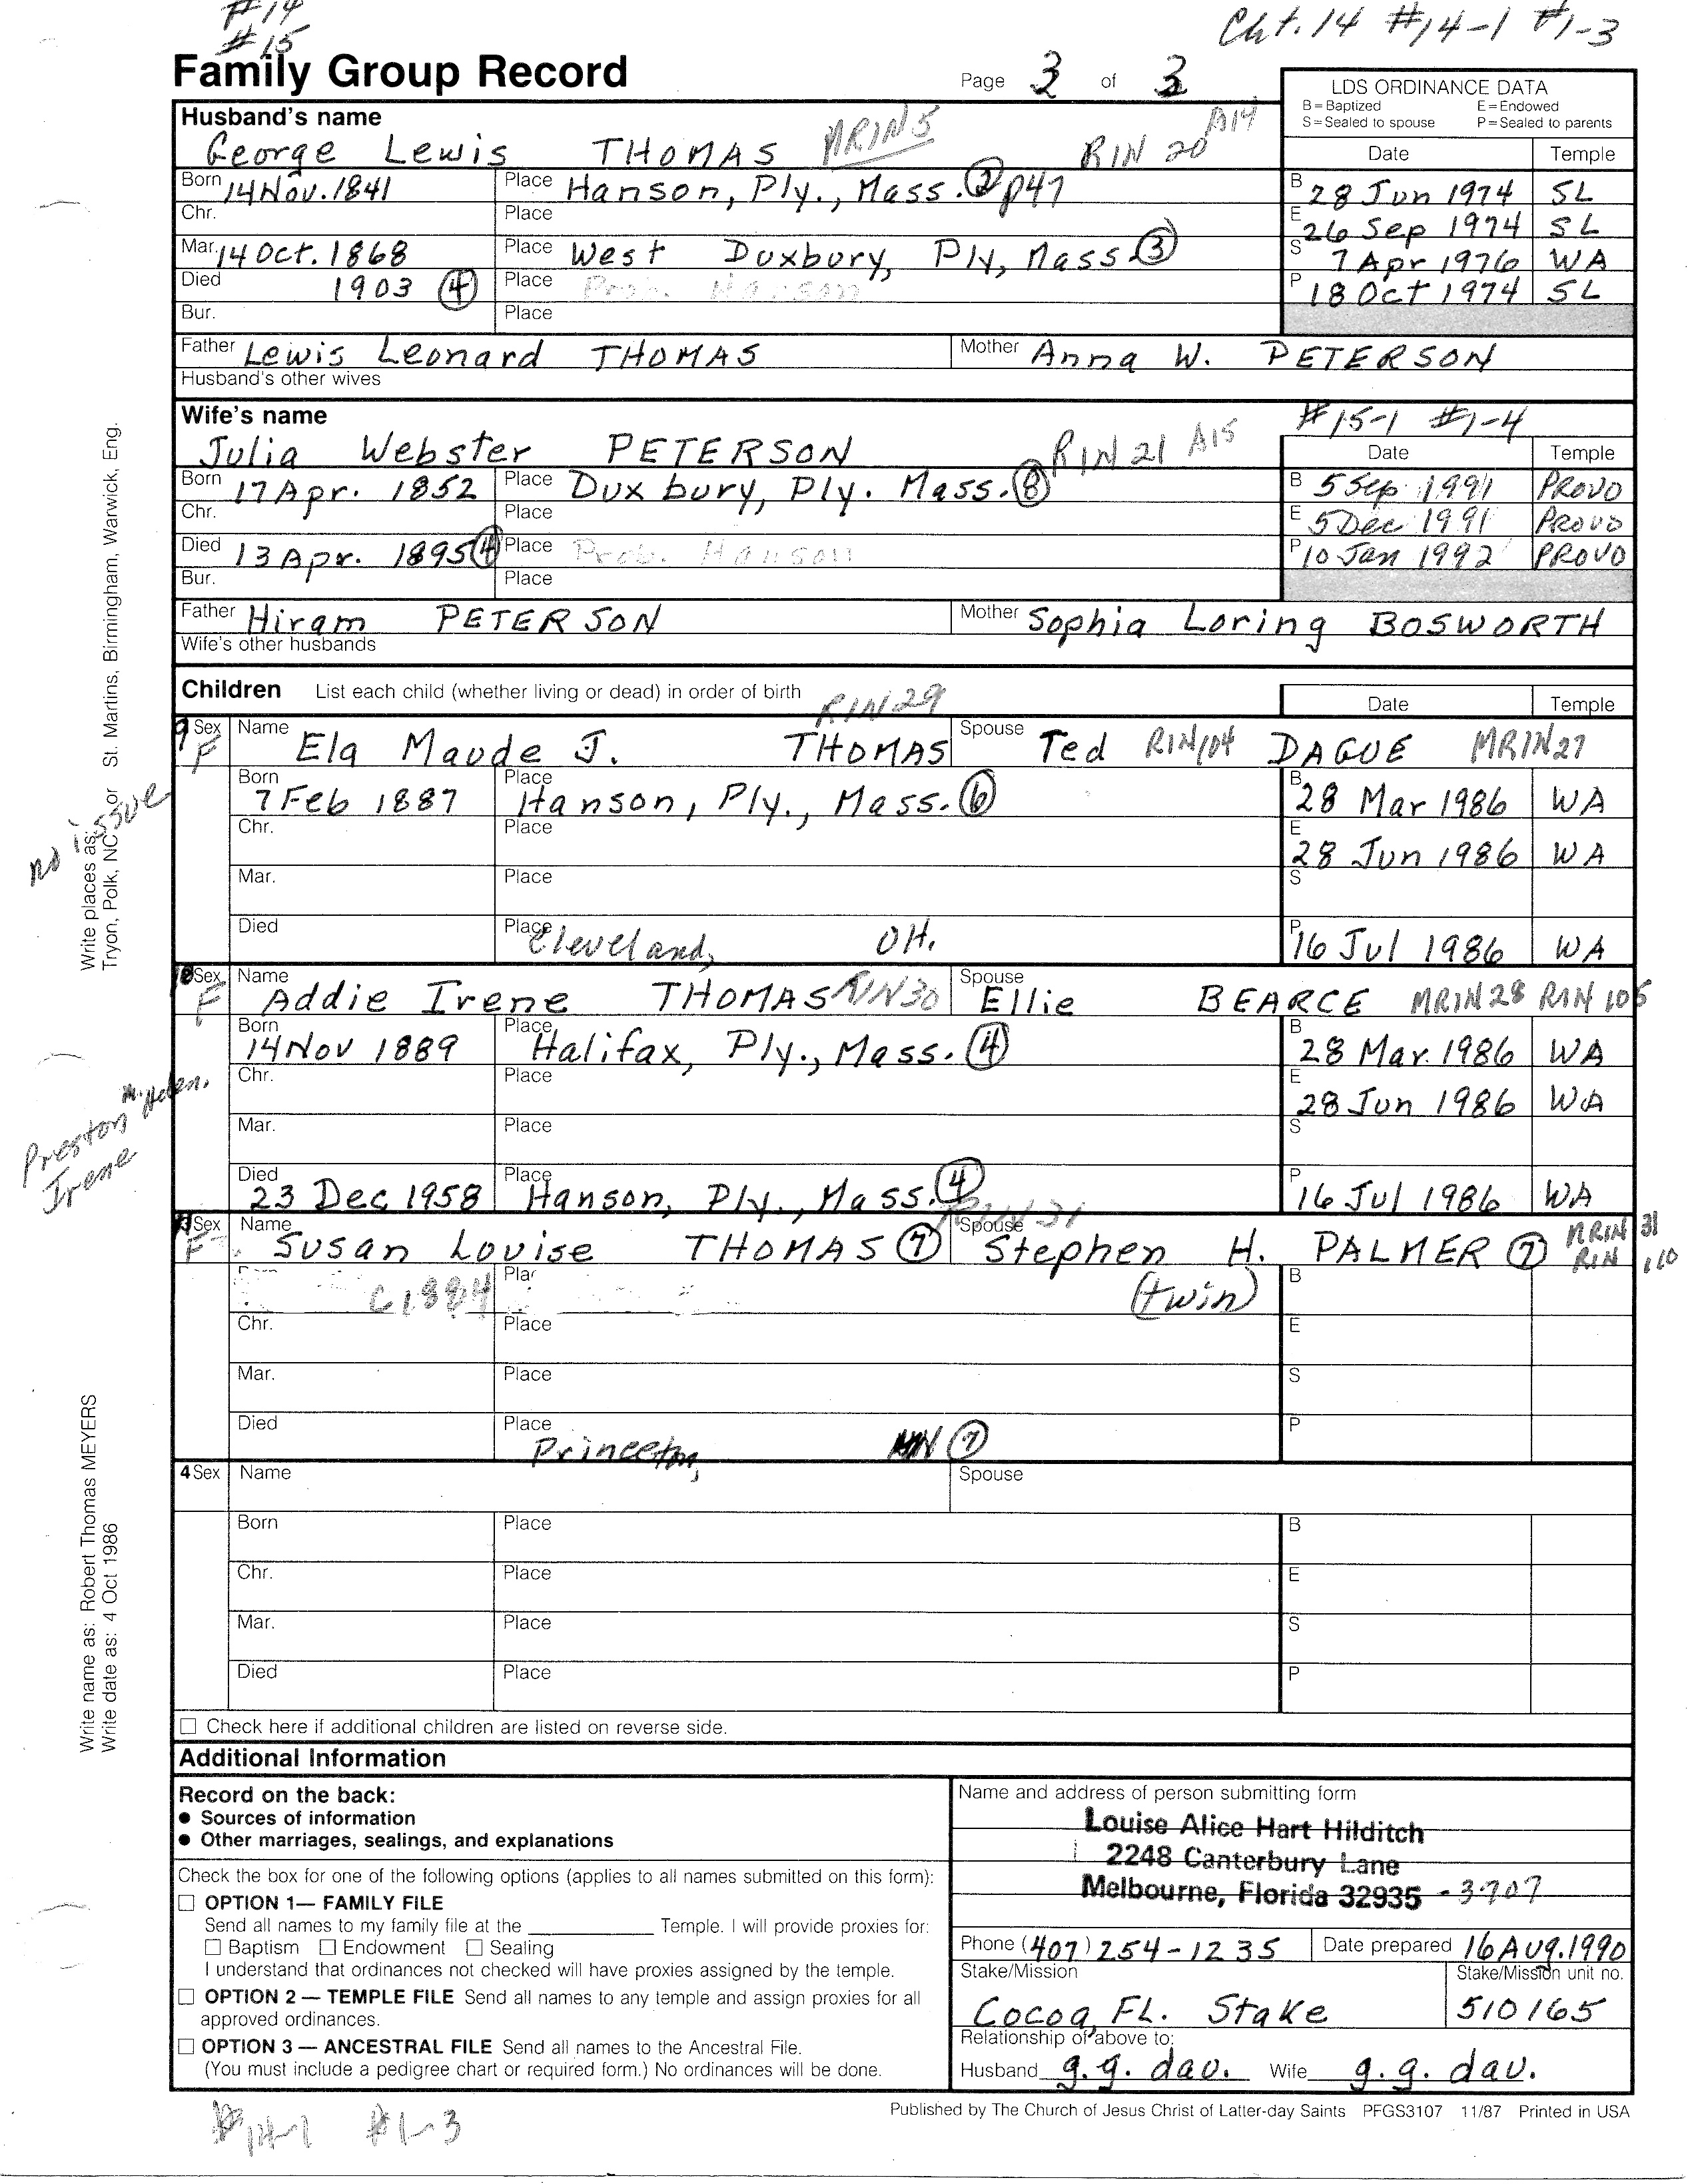 #14
#15
Cht. 14 #14-1 #1-3
Family Group Record
Page 3 of 3
LDS ORDINANCE DATA
B=Baptized E=Endowed
S=Sealed to spouse P=Sealed to parents
Husband's name
George Lewis THOMAS MRIN5 RIN 20 A14
Date Temple
Born 14 Nov. 1841 Place Hanson, Ply., Mass. (2) p47 B 28 Jun 1974 SL
Chr. Place E 26 Sep 1974 SL
Mar. 14 Oct. 1868 Place West Duxbury, Ply, Mass (3) S 7 Apr 1976 WA
Died 1903 (4) Place Prob. Hanson P 18 Oct 1974 SL
Bur. Place
Father Lewis Leonard THOMAS Mother Anna W. PETERSON
Husband's other wives
Wife's name #15-1 #1-4
Julia Webster PETERSON RIN 21 A15 Date Temple
Born 17 Apr. 1852 Place Duxbury, Ply. Mass. (8) B 5 Sep 1991 PROVO
Chr. Place E 5 Dec 1991 PROVO
Died 13 Apr. 1895 (4) Place Prob. Hanson P 10 Jan 1992 PROVO
Bur. Place
Father Hiram PETERSON Mother Sophia Loring BOSWORTH
Wife's other husbands
Children List each child (whether living or dead) in order of birth RIN 29 Date Temple
9 Sex F Name Ela Maude J. THOMAS Spouse Ted RIN104 DAGUE MRIN27
Born 7 Feb 1887 Place Hanson, Ply., Mass. (6) B 28 Mar 1986 WA
Chr. Place E 28 Jun 1986 WA
Mar. Place S
Died Place Cleveland, OH. P 16 Jul 1986 WA
no issue
10 Sex F Name Addie Irene THOMAS RIN30 Spouse Ellie BEARCE MRIN28 RIN 105
Born 14 Nov 1889 Place Halifax, Ply., Mass. (4) B 28 Mar. 1986 WA
Chr. Place E 28 Jun 1986 WA
Mar. Place S
Died 23 Dec 1958 Place Hanson, Ply., Mass. (4) P 16 Jul 1986 WA
Preston M. Helen.
Irene
11 Sex F Name Susan Louise THOMAS (7) RIN 31 Spouse Stephen H. PALMER (7) MRIN 31 RIN 110
C1884 Place (twin) B
Chr. Place E
Mar. Place S
Died Place Princeton, MN (7) P
4 Sex Name Spouse
Born Place B
Chr. Place E
Mar. Place S
Died Place P
☐ Check here if additional children are listed on reverse side.
Additional Information
Record on the back:
● Sources of information
● Other marriages, sealings, and explanations
Check the box for one of the following options (applies to all names submitted on this form):
☐ OPTION 1— FAMILY FILE
Send all names to my family file at the ________ Temple. I will provide proxies for:
☐ Baptism ☐ Endowment ☐ Sealing
I understand that ordinances not checked will have proxies assigned by the temple.
☐ OPTION 2 — TEMPLE FILE Send all names to any temple and assign proxies for all
approved ordinances.
☐ OPTION 3 — ANCESTRAL FILE Send all names to the Ancestral File.
(You must include a pedigree chart or required form.) No ordinances will be done.
Name and address of person submitting form
Louise Alice Hart Hilditch
2248 Canterbury Lane
Melbourne, Florida 32935 - 3707
Phone (407) 254-1235 Date prepared 16 Aug. 1990
Stake/Mission Stake/Mission unit no.
Cocoa, FL. Stake 510165
Relationship of above to:
Husband g.g. dau. Wife g.g. dau.
Published by The Church of Jesus Christ of Latter-day Saints PFGS3107 11/87 Printed in USA
#14-1 #1-3
Write places as: St. Martins, Birmingham, Warwick, Eng.
Tryon, Polk, NC or
Write name as: Robert Thomas MEYERS
Write date as: 4 Oct 1986